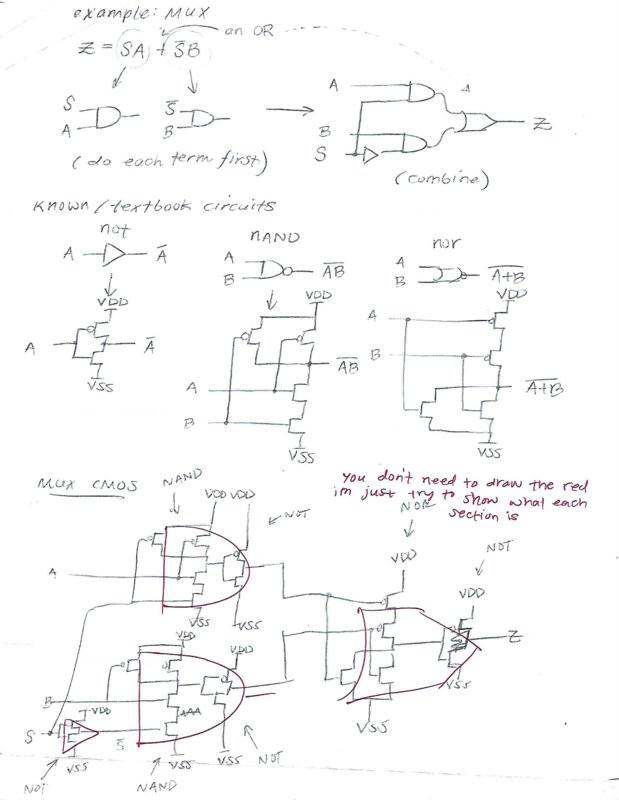 example: MUX
Z = SA + S̅B
an OR
S
A
S̅
B
(do each term first)
A
B
S
Z
(combine)
Known/textbook circuits
not
A
A̅
VDD
A
A̅
VSS
NAND
A
B
A̅B̅
VDD
A̅B̅
A
B
VSS
nor
A
B
A̅+̅B̅
VDD
A
B
A̅+̅B̅
VSS
MUX CMOS
NAND
VDD VDD
NOT
A
VSS
VSS
VDD
VDD
B
S
VDD
VSS
S̅
VSS
VSS
NOT
NAND
NOT
you don't need to draw the red
im just try to show what each
section is
NOR
VDD
NOT
VDD
Z
VSS
VSS